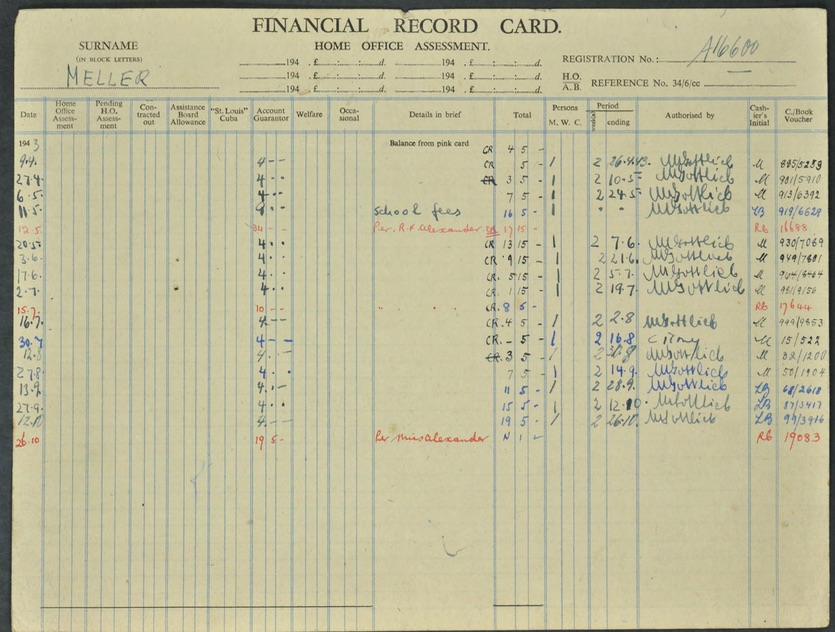 FINANCIAL RECORD CARD.
HOME OFFICE ASSESSMENT.
SURNAME
(IN BLOCK LETTERS)
MELLER
194 . £ : : d. 194 . £ : : d.
194 . £ : : d. 194 . £ : : d.
194 . £ : : d. 194 . £ : : d.
REGISTRATION No.: A16600
H.O.
A.B. REFERENCE No. 34/6/cc
Date Home Office Assessment Pending H.O. Assessment Contracted out Assistance Board Allowance "St. Louis" Cuba Account Guarantor Welfare Occasional Details in brief Total Persons M. W. C. Period weeks ending Authorised by Cashier's Initial C./Book Voucher
1943 Balance from pink card CR 4 5 -
9.4. 4 - - CR 5 - 1 2 26.4.43. MGottlich M 885/5259
27.4 4 - - CR 3 5 - 1 2 10.5 MGottlich M 901/5910
6.5 4 - - 7 5 - 1 2 24.5 MGottlich M 913/6392
11.5. school fees 16 5 - 1 " " MGottlich LB 919/6629
12.5. 34 - - Per. R.F. Alexander. CR 17 15 - RB 16688
20.5. 4 - - CR 13 15 - 1 2 7.6. MGottlich M 930/7069
3.6. 4 - - CR 9 15 - 1 2 21.6. MGottlich M
17.6. 4 - - CR. 5 15 - 1 2 5.7. MGottlich M
2.7. 4 - - CR. 1 15 - 1 2 19.7. MGottlich M
15.7. 10 - - " " CR. 8 5 - RB 17644
16.7. 4 - - CR. 4 5 - 1 2 2.8 MGottlich M 999/9853
30.7 4 - - CR. - 5 - 1 2 16.8 M 15/522
12.8 4 - - CR. 3 5 - 1 2 MGottlich M 32/1200
27.8 4 - - 7 5 - 1 2 14.9. MGottlich M 50/1904
13.9. 4 - - 11 5 - 1 2 28.9. MGottlich LB 68/2618
27.9. 4 - - 15 5 - 1 2 12.10. MGottlich LB 87/3417
12.10 4 - - 19 5 - 1 2 26.10. MGottlich LB 99/3916
26.10 19 5 - Per Miss Alexander N 1 L RB 19083